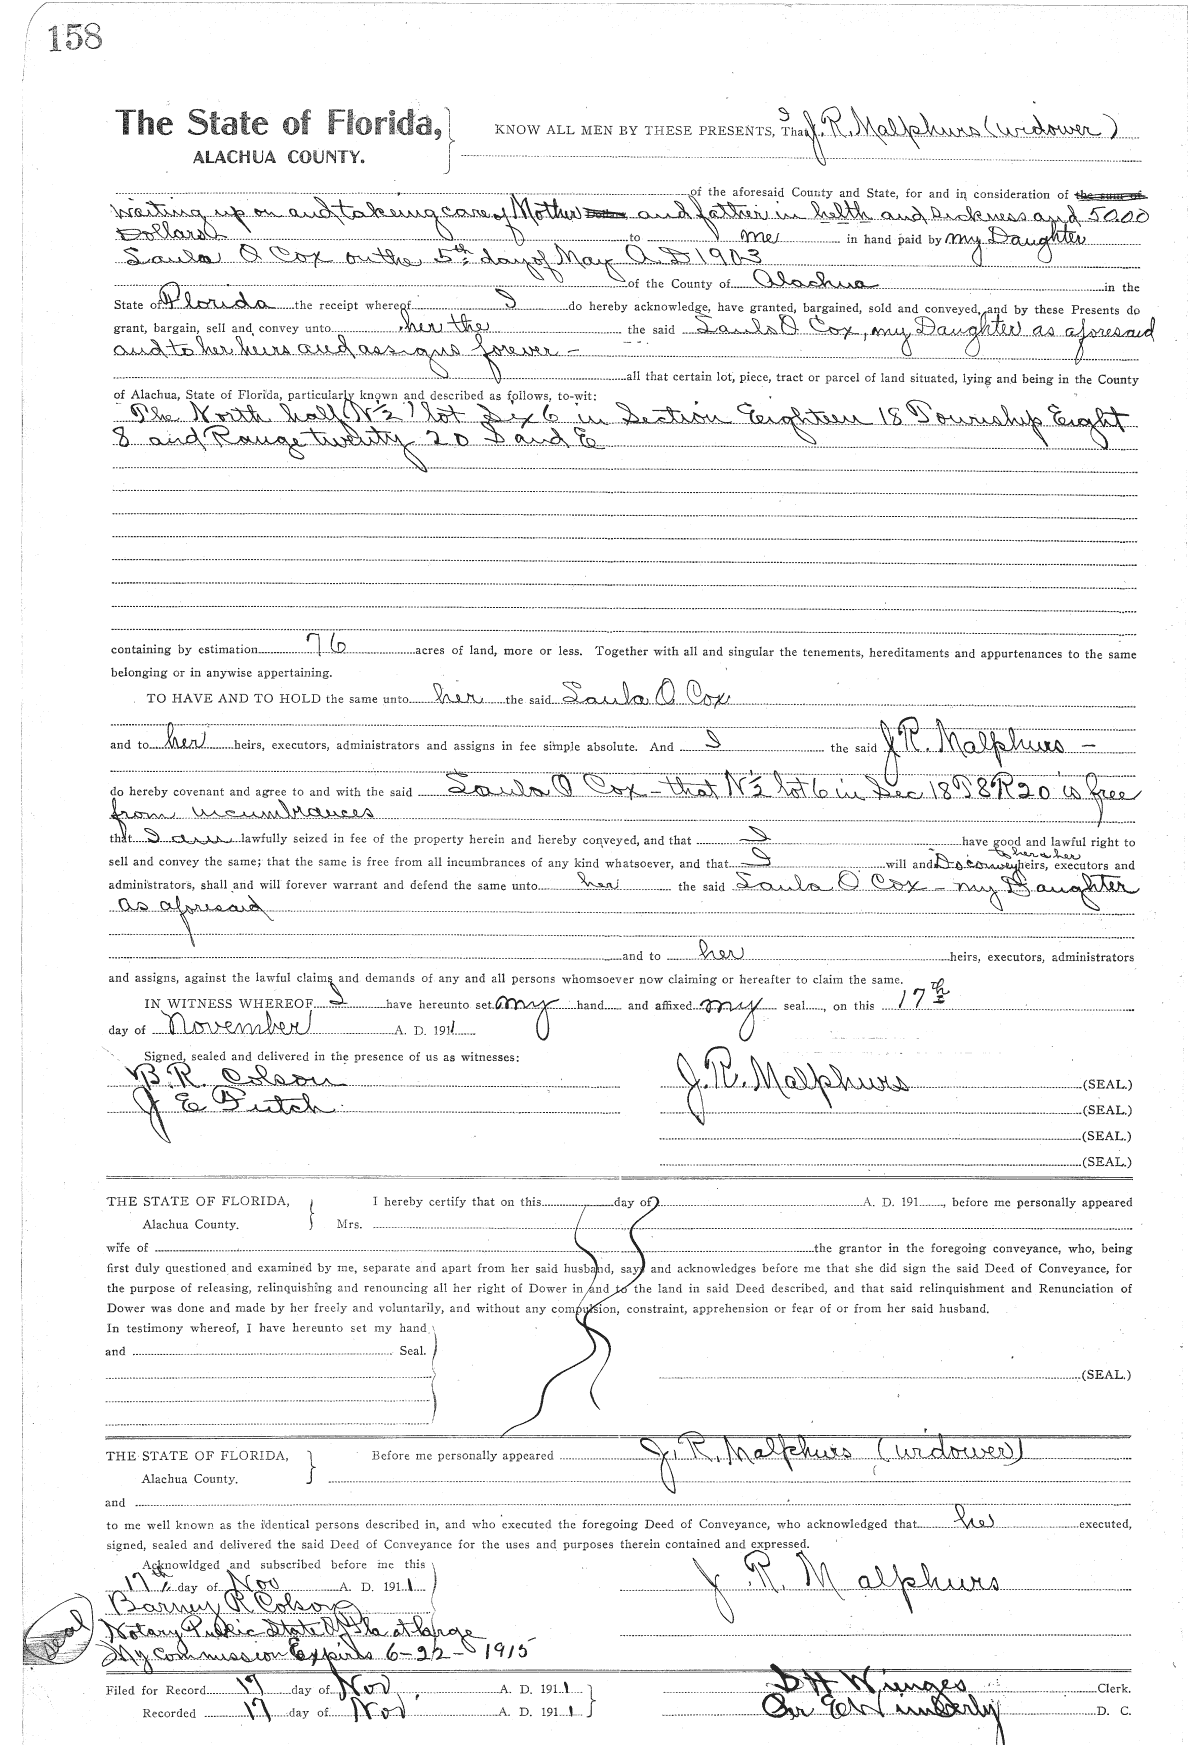 158
The State of Florida,
ALACHUA COUNTY.
KNOW ALL MEN BY THESE PRESENTS, That I J. R. Malphurs (widower)
of the aforesaid County and State, for and in consideration of the sum of
waiting up on and takeing care of Mother and father in helth and sickness and 50.00
Dollars to me in hand paid by my Daughter
Saula O Cox on the 5th day of May A.D 1903
of the County of Alachua in the
State of Florida the receipt whereof I do hereby acknowledge, have granted, bargained, sold and conveyed, and by these Presents do
grant, bargain, sell and convey unto her the the said Saula O Cox, my Daughter as aforesaid
and to her heirs and assigns forever –
all that certain lot, piece, tract or parcel of land situated, lying and being in the County
of Alachua, State of Florida, particularly known and described as follows, to-wit:
The North half (N½) lot Six 6 in Section Eighteen 18 Township Eight
8 and Range twenty 20 S and E
containing by estimation 76 acres of land, more or less. Together with all and singular the tenements, hereditaments and appurtenances to the same
belonging or in anywise appertaining.
TO HAVE AND TO HOLD the same unto her the said Saula O Cox
and to her heirs, executors, administrators and assigns in fee simple absolute. And I the said J R. Malphurs –
do hereby covenant and agree to and with the said Saula O Cox – that N½ lot 6 in Sec 18 T8 R20 is free
from incumbrances
that I am lawfully seized in fee of the property herein and hereby conveyed, and that I have good and lawful right to
sell and convey the same; that the same is free from all incumbrances of any kind whatsoever, and that I will and Do convey to her & her heirs, executors and
administrators, shall and will forever warrant and defend the same unto her the said Saula O Cox – my Daughter
as aforesaid
and to her heirs, executors, administrators
and assigns, against the lawful claims and demands of any and all persons whomsoever now claiming or hereafter to claim the same.
IN WITNESS WHEREOF I have hereunto set my hand and affixed my seal, on this 17th
day of November A. D. 1911
Signed, sealed and delivered in the presence of us as witnesses:
B. R. Colson
J E Futch
J. R. Malphurs (SEAL.)
(SEAL.)
(SEAL.)
(SEAL.)
THE STATE OF FLORIDA,
Alachua County.
I hereby certify that on this day of A. D. 191 , before me personally appeared
Mrs.
wife of the grantor in the foregoing conveyance, who, being
first duly questioned and examined by me, separate and apart from her said husband, say and acknowledges before me that she did sign the said Deed of Conveyance, for
the purpose of releasing, relinquishing and renouncing all her right of Dower in and to the land in said Deed described, and that said relinquishment and Renunciation of
Dower was done and made by her freely and voluntarily, and without any compulsion, constraint, apprehension or fear of or from her said husband.
In testimony whereof, I have hereunto set my hand
and Seal.
(SEAL.)
THE STATE OF FLORIDA,
Alachua County.
Before me personally appeared J. R. Malphurs (widower)
and
to me well known as the identical persons described in, and who executed the foregoing Deed of Conveyance, who acknowledged that he executed,
signed, sealed and delivered the said Deed of Conveyance for the uses and purposes therein contained and expressed.
Acknowldged and subscribed before me this
17th day of Nov A. D. 1911
J. R. Malphurs
Barney R Colson
Notary Public State Of Fla at large
My commission Expires 6-22-1915
seal
Filed for Record 17 day of Nov, A. D. 1911
Recorded 17 day of Nov A. D. 1911
S H Wienges Clerk.
Per E Wimberly D. C.